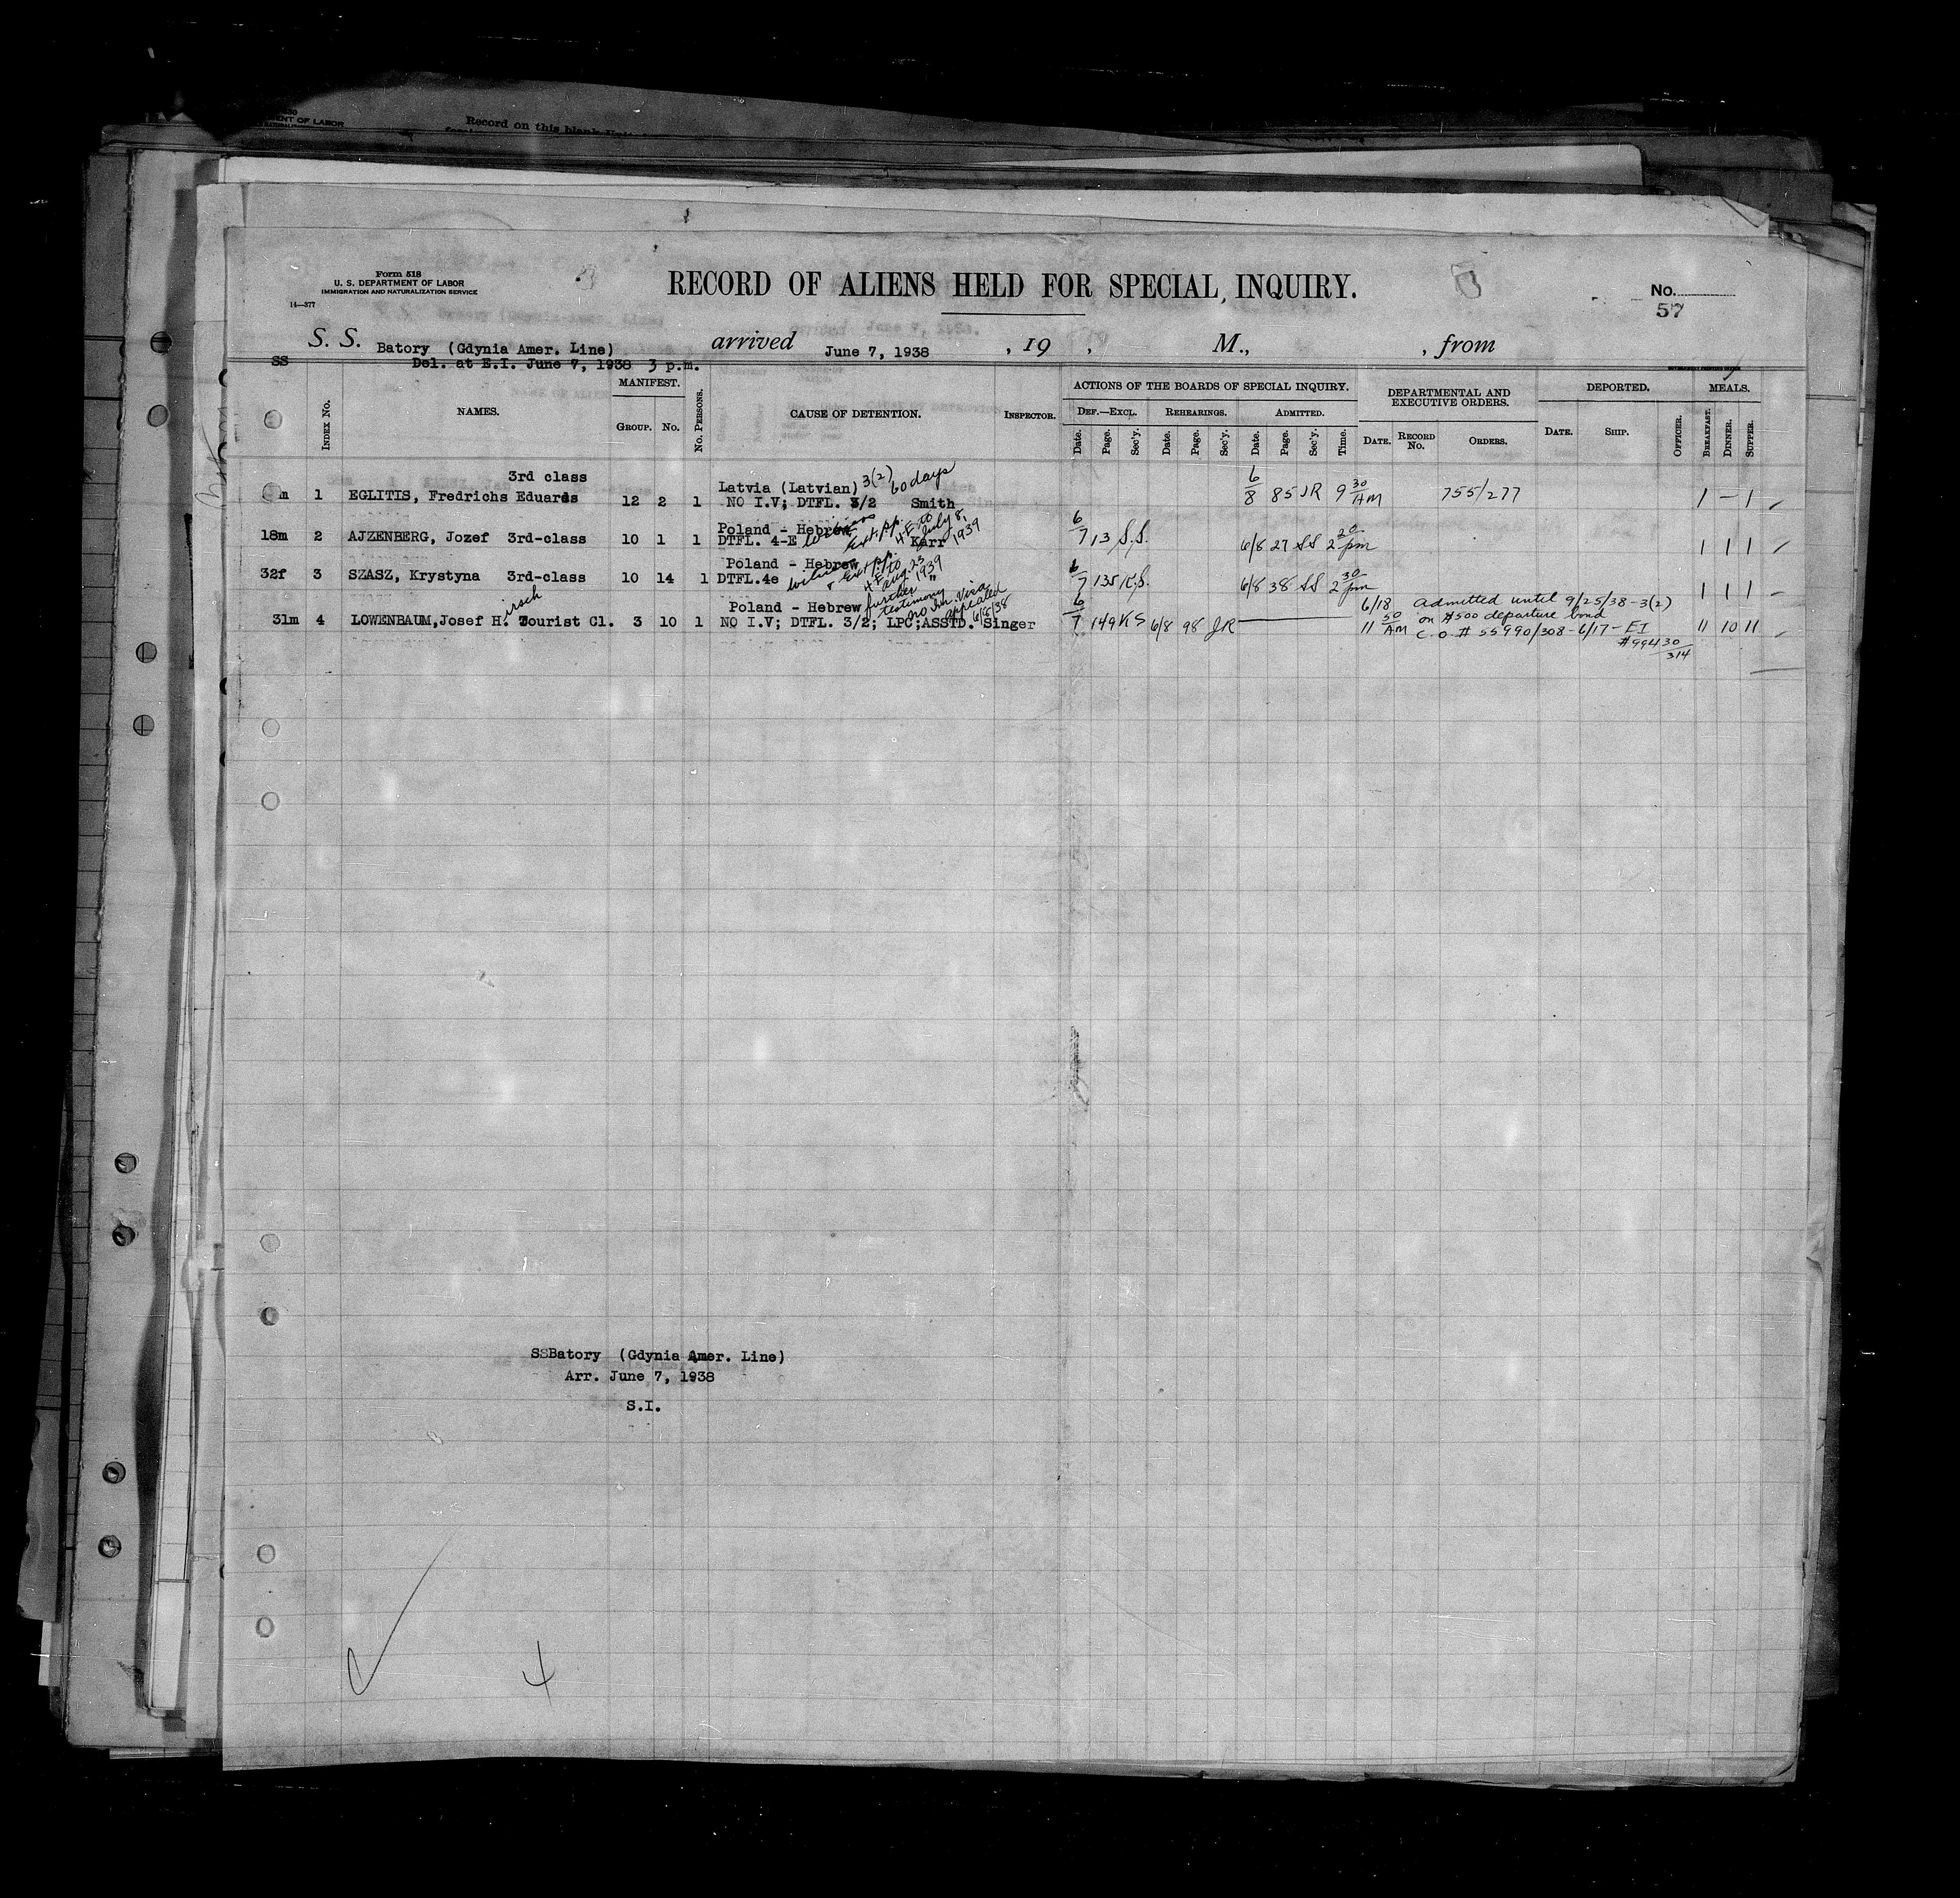 MENT OF LABOR
Record on this blank
Form 518
U. S. DEPARTMENT OF LABOR
IMMIGRATION AND NATURALIZATION SERVICE
14—377
RECORD OF ALIENS HELD FOR SPECIAL INQUIRY.
No.
57
S. S. Batory (Gdynia Amer. Line) arrived June 7, 1938 , 19 , M., , from
SS Del. at E.I. June 7, 1938 3 p.m.
INDEX No. NAMES. MANIFEST. GROUP. No. No. PERSONS. CAUSE OF DETENTION. INSPECTOR. ACTIONS OF THE BOARDS OF SPECIAL INQUIRY. DEPARTMENTAL AND EXECUTIVE ORDERS. DEPORTED. MEALS.
DEF.—EXCL. REHEARINGS. ADMITTED.
Date. Page. Sec'y. Date. Page. Sec'y. Date. Page. Sec'y. Time. DATE. RECORD No. ORDERS. DATE. SHIP. OFFICER. BREAKFAST. DINNER. SUPPER.
3rd class Latvia (Latvian) 3(2) 60 days
m 1 EGLITIS, Fredrichs Eduards 12 2 1 NO I.V; DTFL. 3/2 Smith 6/8 85 JR 9 30 AM 755/277 1 — 1
Poland - Hebrew
18m 2 AJZENBERG, Jozef 3rd-class 10 1 1 DTFL. 4-E Karr July 8, 1939 6/7 13 S.S. 6/8 27 SS 2 20 pm 1 1 1
Poland - Hebrew
32f 3 SZASZ, Krystyna 3rd-class 10 14 1 DTFL.4e Ext. pp. 4E to Aug. 23 1939 6/7 135 K.S. 6/8 38 SS 2 30 pm 1 1 1
Poland - Hebrew further testimony no Im Visa appealed 6/8/38
31m 4 LOWENBAUM,Josef H.irsch Tourist Cl. 3 10 1 NO I.V; DTFL. 3/2; LPC;ASSTD. Singer 6/7 149 KS 6/8 98 JR 6/18 11 50 AM Admitted until 9/25/38-3(2)
on $500 departure bond
C.O.# 55990/308-6/17-EI 11 10 11
#99430/314
SSBatory (Gdynia Amer. Line)
Arr. June 7, 1938
S.I.
4